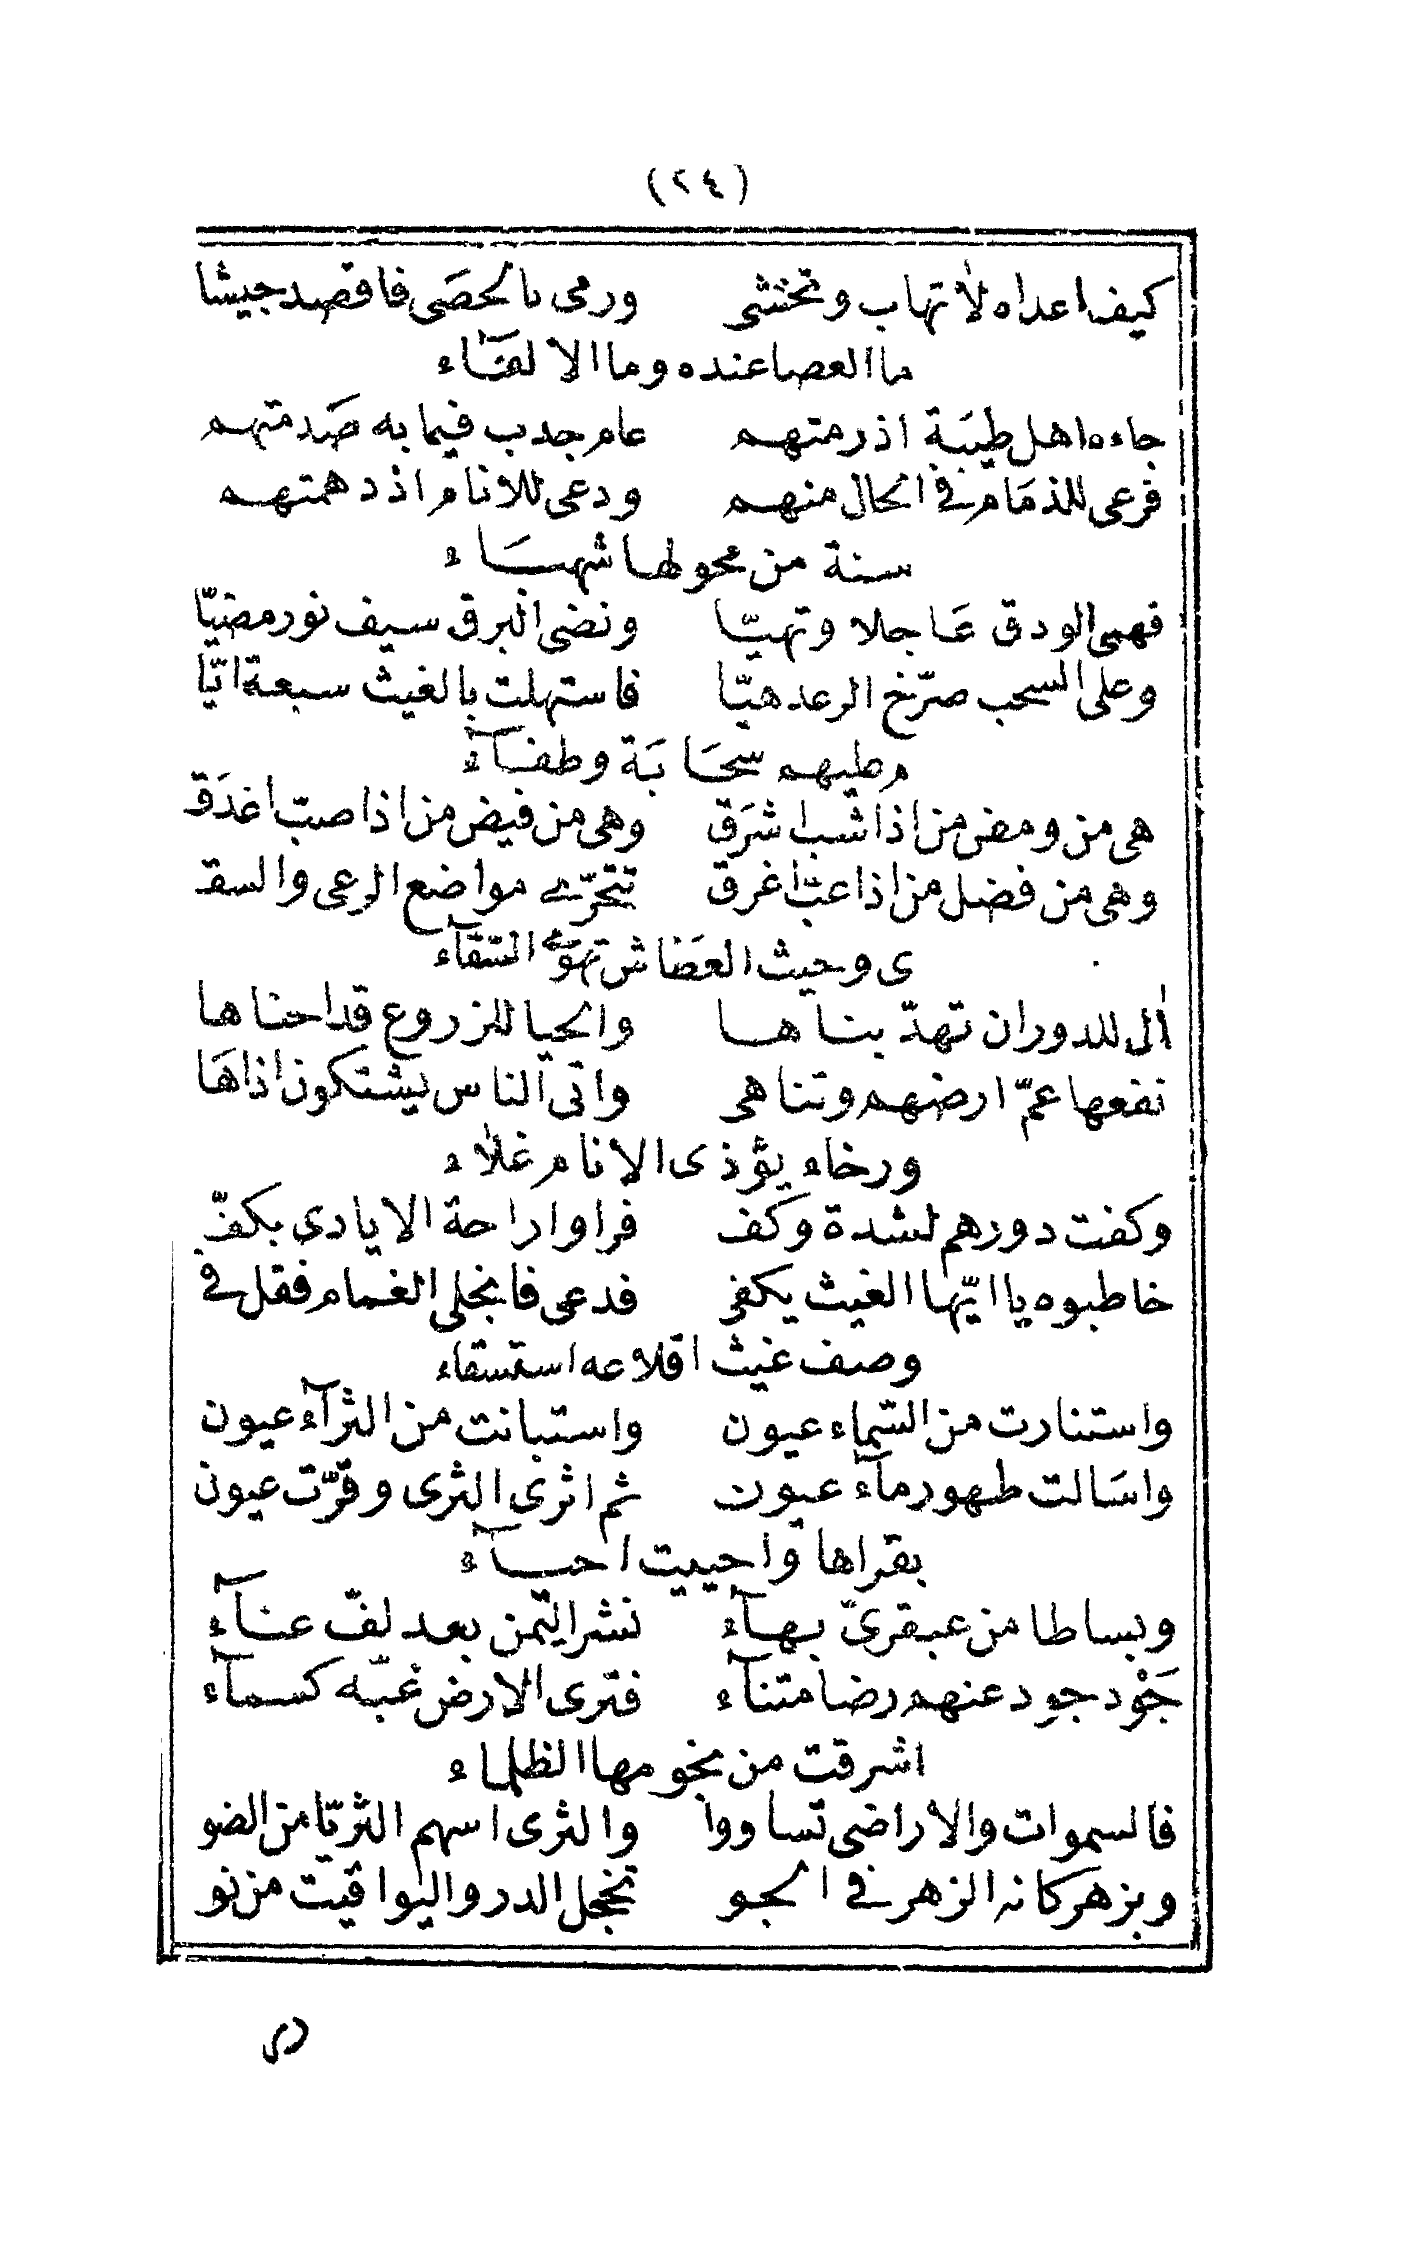 (٢٤)
كيف اعداه لاتهاب وتختشى ورمى بالحصَى فاقصد جيشا
ما العصا عنده وما الالقآء
جاءه اهل طيبَة اذ رمتهم عام جدب فيما به صَدمتهم
فرعى للذمَام في الحال منهم ودعى للانام اذ دهمتهم
سنة من محولها شهبَاء
فهمى الودق عَاجلا وتهيّا ونضى البرق سيف نور مضيّا
وعلى السحب صرّخ الرعد هيّا فاستهلت بالغيث سبعة ايّا
م عليهم سحَابَة وطفآء
هى من ومض من اذا شب اشرَق وهى من فيض من اذا صبّ اغدَق
وهى من فضل من اذا عبّ اغرق تتحرّى مواضع الرعى والسقـ
ى وحيث العطاش تهوَى السّقآء
اٰلى للدوران تهدّ بناها والحيا للزروع قد احناها
نفعها عمّ ارضهم وتناهى واتى الناس يشتكون اذاهَا
ورخاء يؤذى الانام غلاء
وكفت دورهم لشدة وكف فراوا راحة الايادى بكفّ
خاطبوه يا ايّها الغيث يكفى فدعى فانجلى الغمام فقل في
وصف غيث اقلاعه استسقاء
واستنارت من السّماء عيون واستبانت من الثرآء عيون
واسَالت طهور مآء عيون ثم اثرى الثرى وقرّت عيون
بقراها وَاحييت احيآء
وبساطا من عبقرىّ بهآء نشر اليّمن بعد لفّ عنآء
جَوْد جود عنهم رضا متنآء فترى الارض غبّه كسمآء
اشرقت من نجومها الظلماء
فالسموات والاراضى تساووا والثرى اسهم الثريّا من الضو
وبزهر كانه الزهر في الجو تخجل الدر واليواقيت من نو